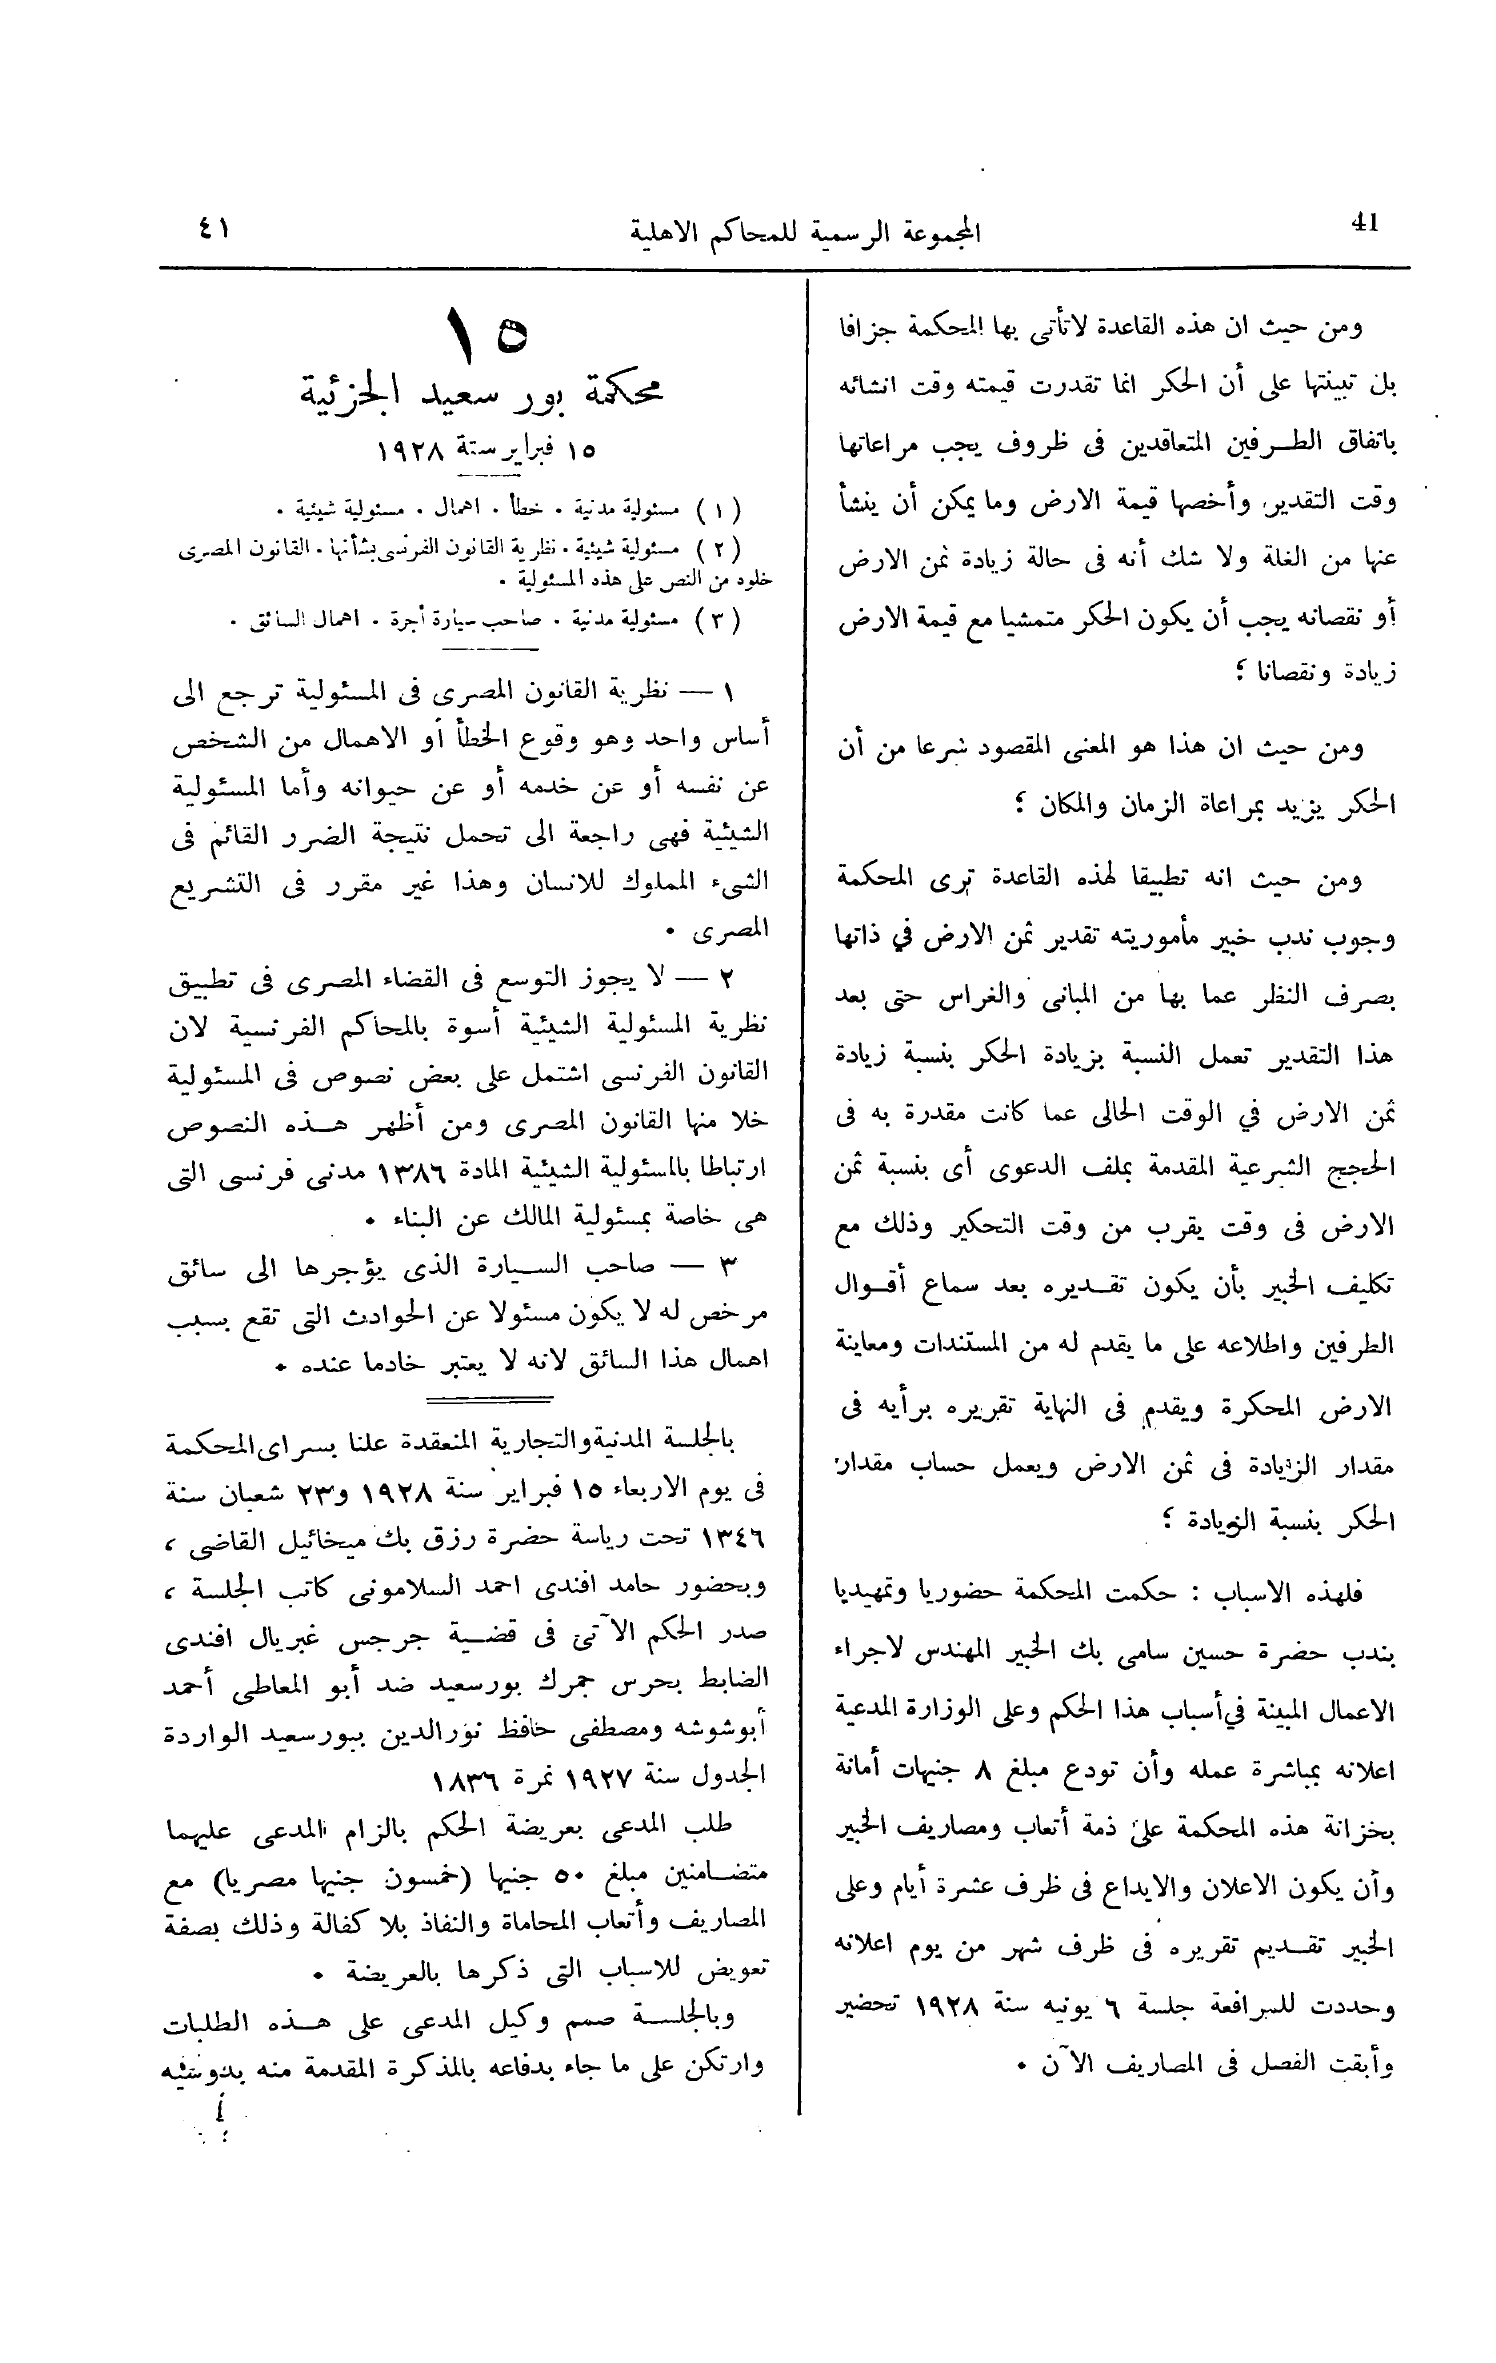 41
المجموعة الرسمية للمحاكم الاهلية
٤١
ومن حيث ان هذه القاعدة لا تأتى بها المحكمة جزافا
بل تبينتها على أن الحكر انما تقدرت قيمته وقت انشائه
باتفاق الطرفين المتعاقدين فى ظروف يجب مراعاتها
وقت التقدير وأخصها قيمة الارض وما يمكن أن ينشأ
عنها من الغلة ولا شك أنه فى حالة زيادة ثمن الارض
أو نقصانه يجب أن يكون الحكر متمشيا مع قيمة الارض
زيادة ونقصانا ؛
ومن حيث ان هذا هو المعنى المقصود شرعا من أن
الحكر يزيد بمراعاة الزمان والمكان ؛
ومن حيث انه تطبيقا لهذه القاعدة ترى المحكمة
وجوب ندب خبير مأموريته تقدير ثمن الارض في ذاتها
بصرف النظر عما بها من المبانى والغراس حتى بعد
هذا التقدير تعمل النسبة بزيادة الحكر بنسبة زيادة
ثمن الارض في الوقت الحالى عما كانت مقدرة به فى
الحجج الشرعية المقدمة بملف الدعوى أى بنسبة ثمن
الارض فى وقت يقرب من وقت التحكير وذلك مع
تكليف الخبير بأن يكون تقديره بعد سماع أقوال
الطرفين واطلاعه على ما يقدم له من المستندات ومعاينة
الارض المحكرة ويقدم فى النهاية تقريره برأيه فى
مقدار الزيادة فى ثمن الارض ويعمل حساب مقدار
الحكر بنسبة الزيادة ؛
فلهذه الاسباب : حكمت المحكمة حضوريا وتمهيديا
بندب حضرة حسين سامى بك الخبير المهندس لاجراء
الاعمال المبينة في أسباب هذا الحكم وعلى الوزارة المدعية
اعلانه بمباشرة عمله وأن تودع مبلغ ٨ جنيهات أمانة
بخزانة هذه المحكمة على ذمة أتعاب ومصاريف الخبير
وأن يكون الاعلان والايداع فى ظرف عشرة أيام وعلى
الخبير تقديم تقريره فى ظرف شهر من يوم اعلانه
وحددت للمرافعة جلسة ٦ يونيه سنة ١٩٢٨ تحضير
وأبقت الفصل فى المصاريف الآن .
١٥
محكمة بور سعيد الجزئية
١٥ فبراير سنة ١٩٢٨
(١) مسئولية مدنية . خطأ . اهمال . مسئولية شيئية .
(٢) مسئولية شيئية . نظرية القانون الفرنسى بشأنها . القانون المصرى
خلوه من النص على هذه المسئولية .
(٣) مسئولية مدنية . صاحب سيارة أجرة . اهمال السائق .
١ — نظرية القانون المصرى فى المسئولية ترجع الى
أساس واحد وهو وقوع الخطأ أو الاهمال من الشخص
عن نفسه أو عن خدمه أو عن حيوانه وأما المسئولية
الشيئية فهى راجعة الى تحمل نتيجة الضرر القائم فى
الشىء المملوك للانسان وهذا غير مقرر فى التشريع
المصرى .
٢ — لا يجوز التوسع فى القضاء المصرى فى تطبيق
نظرية المسئولية الشيئية أسوة بالمحاكم الفرنسية لان
القانون الفرنسى اشتمل على بعض نصوص فى المسئولية
خلا منها القانون المصرى ومن أظهر هذه النصوص
ارتباطا بالمسئولية الشيئية المادة ١٣٨٦ مدنى فرنسى التى
هى خاصة بمسئولية المالك عن البناء .
٣ — صاحب السيارة الذى يؤجرها الى سائق
مرخص له لا يكون مسئولا عن الحوادث التى تقع بسبب
اهمال هذا السائق لانه لا يعتبر خادما عنده .
بالجلسة المدنية والتجارية المنعقدة علنا بسراى المحكمة
فى يوم الاربعاء ١٥ فبراير سنة ١٩٢٨ و٢٣ شعبان سنة
١٣٤٦ تحت رياسة حضرة رزق بك ميخائيل القاضى ،
وبحضور حامد افندى احمد السلامونى كاتب الجلسة ،
صدر الحكم الآتى فى قضية جرجس غبريال افندى
الضابط بحرس جمرك بورسعيد ضد أبو المعاطى أحمد
أبوشوشه ومصطفى حافظ نورالدين ببورسعيد الواردة
الجدول سنة ١٩٢٧ نمرة ١٨٣٦
طلب المدعى بعريضة الحكم بالزام المدعى عليهما
متضامنين مبلغ ٥٠ جنيها (خمسون جنيها مصريا) مع
المصاريف وأتعاب المحاماة والنفاذ بلا كفالة وذلك بصفة
تعويض للاسباب التى ذكرها بالعريضة .
وبالجلسة صمم وكيل المدعى على هذه الطلبات
وارتكن على ما جاء بدفاعه بالمذكرة المقدمة منه بدوسيه